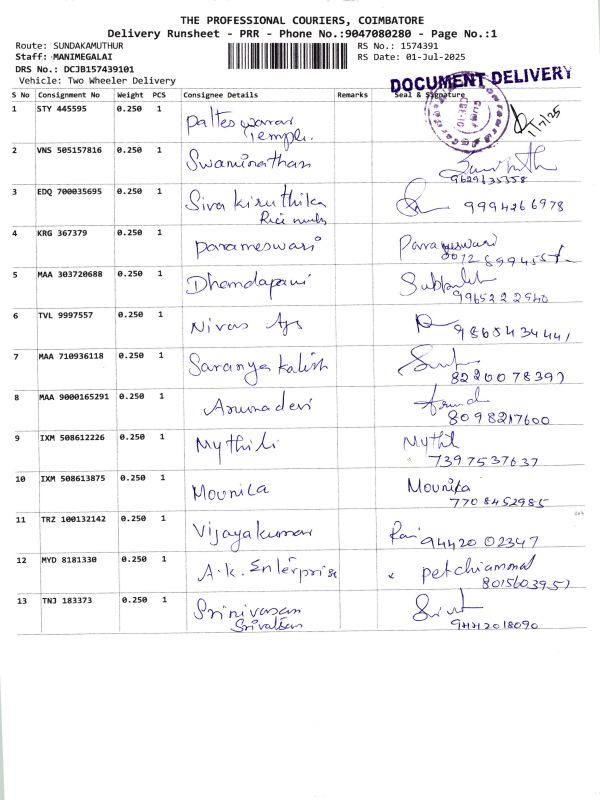 THE PROFESSIONAL COURIERS, COIMBATORE
Delivery Runsheet - PRR - Phone No.:9047080280 - Page No.:1
Route: SUNDAKAMUTHUR RS No.: 1574391
Staff: MANIMEGALAI RS Date: 01-Jul-2025
DRS No.: DCJB157439101
Vehicle: Two Wheeler Delivery
DOCUMENT DELIVERY
S No Consignment No Weight PCS Consignee Details Remarks Seal & Signature
1 STY 445595 0.250 1 Palteswarar
Temple. 1/7/25
2 VNS 505157816 0.250 1 Swaminathan
9629635358
3 EDQ 700035695 0.250 1 Siva Kiruthika 9994266978
Rice
4 KRG 367379 0.250 1 Parameswari Parrameswari
5 MAA 303720688 0.250 1 Dhandapani
9965222940
6 TVL 9997557 0.250 1 Nivas Ays 9865434441
7 MAA 710936118 0.250 1 Saranya Kalish
8220078397
8 MAA 9000165291 0.250 1 Arunadevi
8098217600
9 IXM 508612226 0.250 1 Mythili Mythili
7397537637
10 IXM 508613875 0.250 1 Mounika Mounika
7708452985
11 TRZ 100132142 0.250 1 Vijayakumar 9442002347
12 MYD 8181330 0.250 1 A.K. Enterprise Petchiammal
8015603957
13 TNJ 183373 0.250 1 Srinivasan
Srivatsan 9442018090